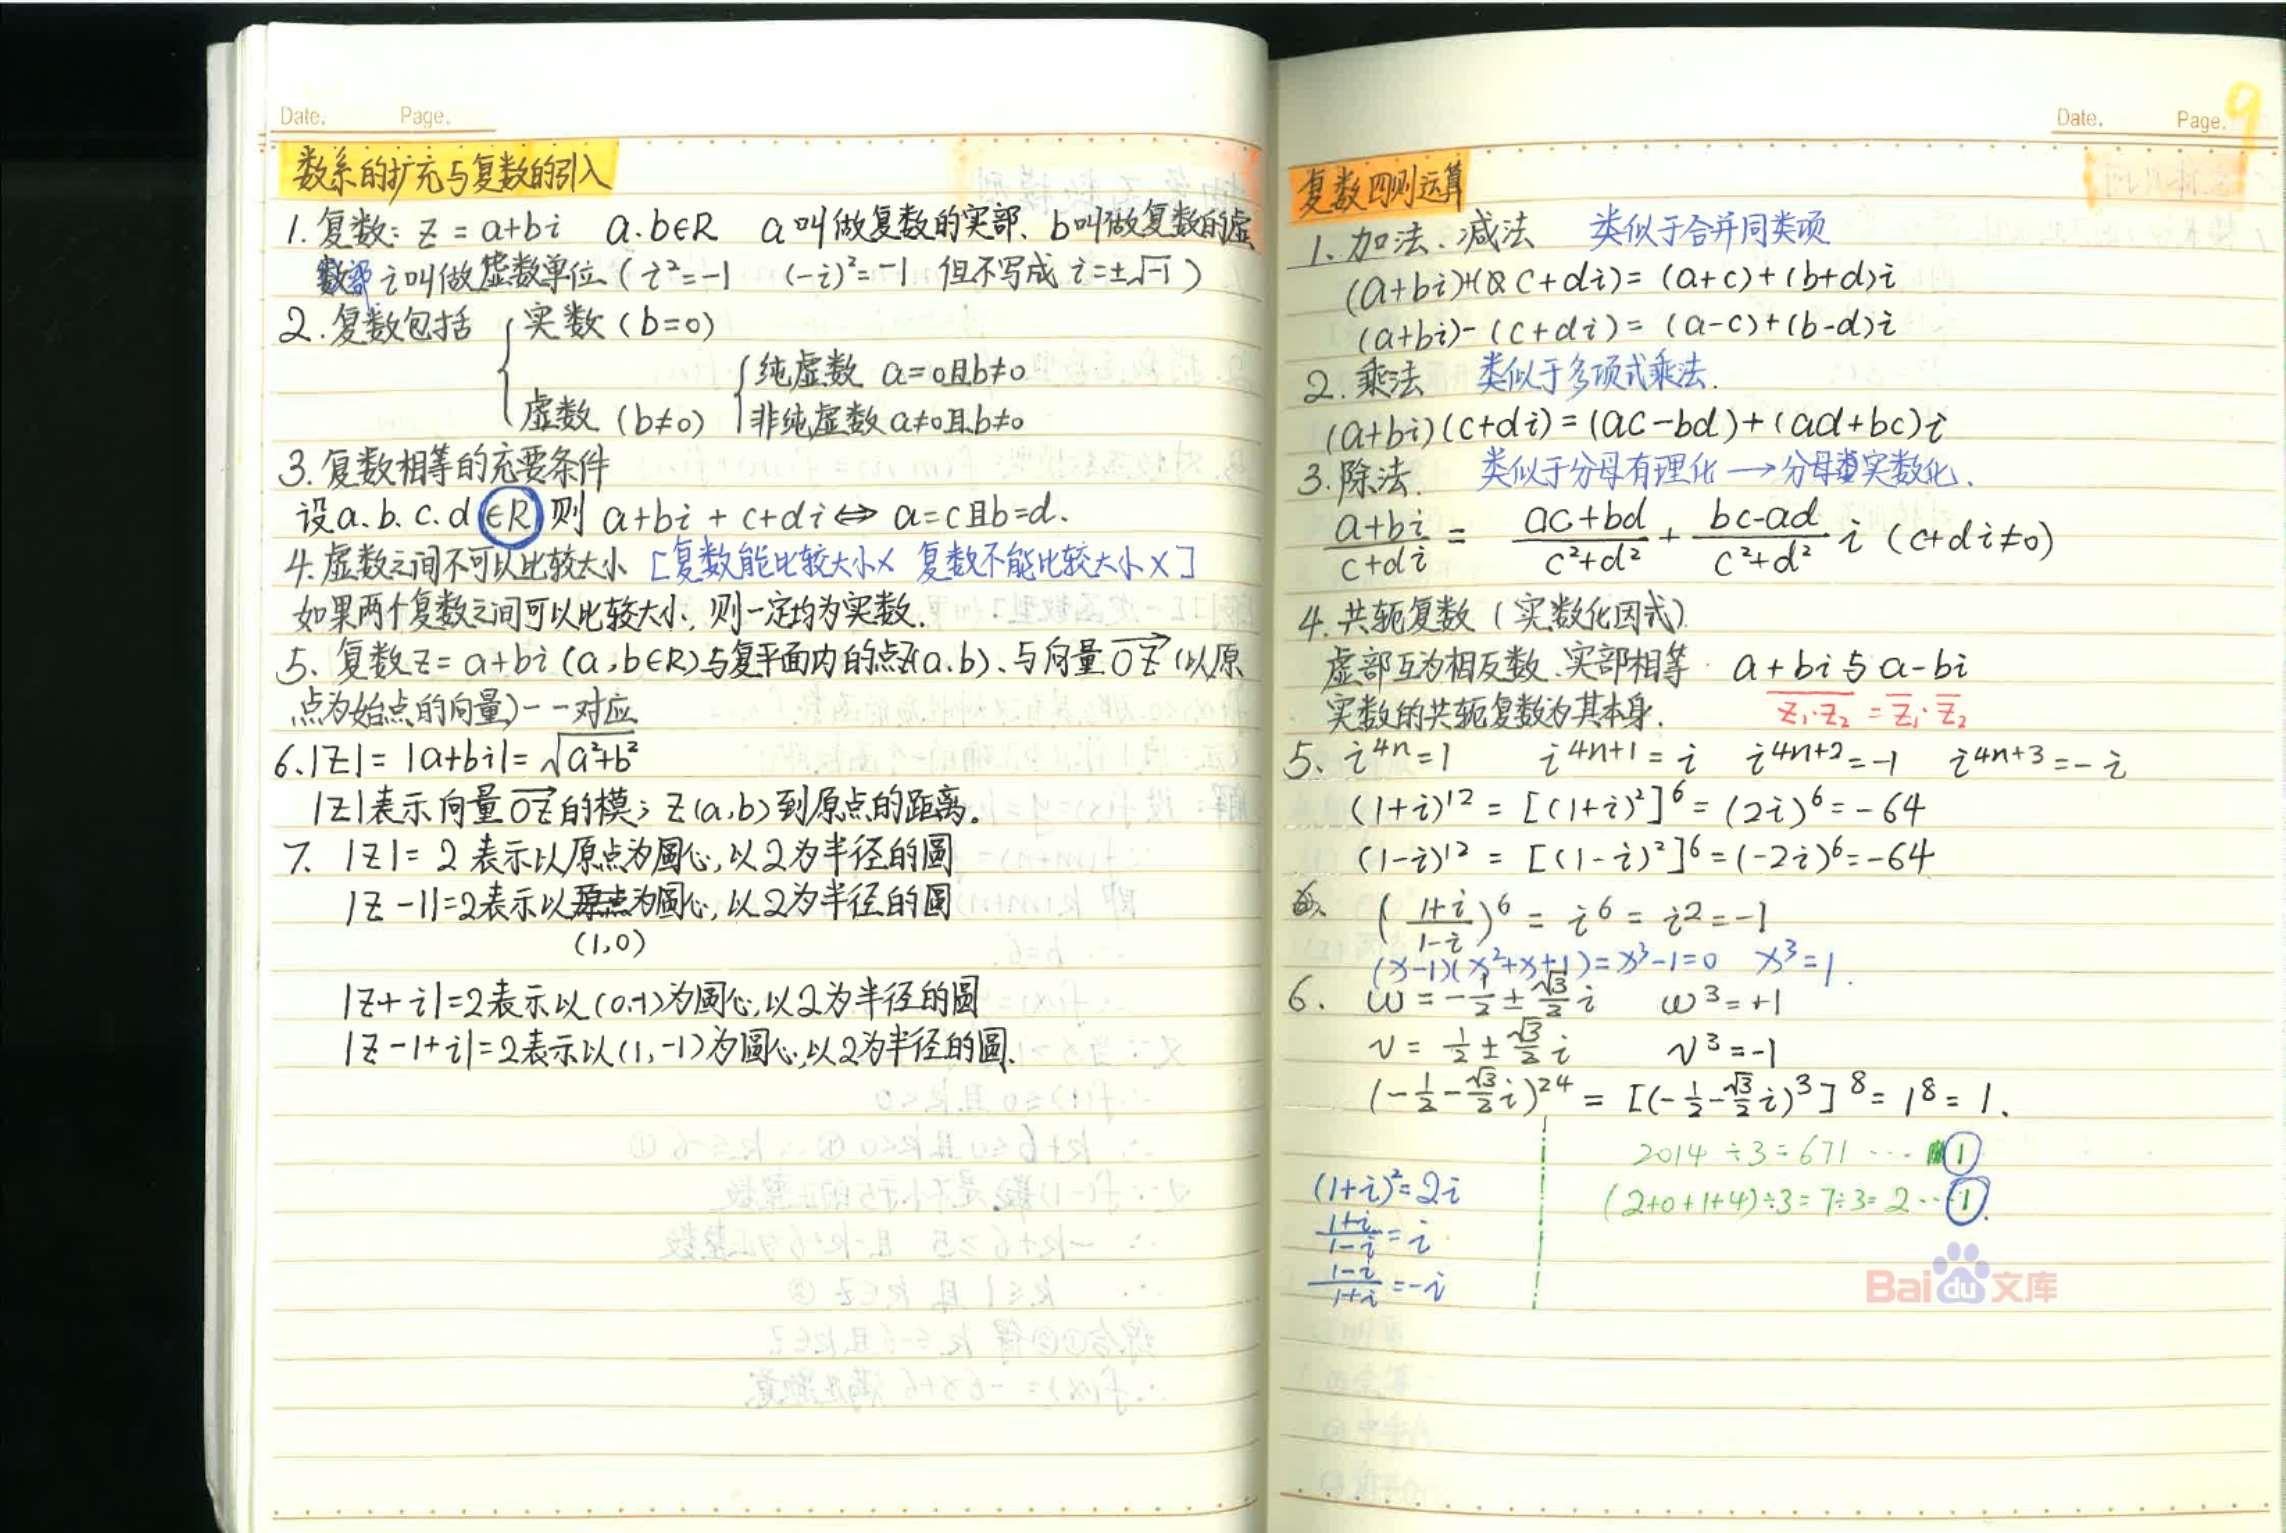 Date. Page.
数系的扩充与复数的引入
1. 复数: z = a+bi a.b∈R a叫做复数的实部、b叫做复数的虚
部 i叫做虚数单位 ( i²=-1 (-i)²=-1 但不写成 i=±√-1 )
2. 复数包括 { 实数 (b=0)
{ 纯虚数 a=0且b≠0
虚数 (b≠0) 非纯虚数 a≠0且b≠0
3. 复数相等的充要条件
设a.b.c.d ∈R 则 a+bi + c+di ⇔ a=c且b=d.
4. 虚数之间不可以比较大小 [复数能比较大小× 复数不能比较大小×]
如果两个复数之间可以比较大小, 则一定均为实数.
5. 复数z=a+bi (a,b∈R)与复平面内的点Z(a.b)、与向量OZ→(以原
点为始点的向量)一一对应
6. |z| = |a+bi| = √a²+b²
|z|表示向量OZ→的模; Z(a,b)到原点的距离.
7. |z|=2 表示以原点为圆心, 以2为半径的圆
|z-1|=2表示以原点为圆心, 以2为半径的圆
(1,0)
|z+i|=2表示以(0,-1)为圆心, 以2为半径的圆
|z-1+i|=2表示以(1,-1)为圆心, 以2为半径的圆.
Date. Page. 9
复数四则运算
1. 加法、减法 类似于合并同类项
(a+bi)+(c+di)=(a+c)+(b+d)i
(a+bi)-(c+di)=(a-c)+(b-d)i
2. 乘法 类似于多项式乘法.
(a+bi)(c+di)=(ac-bd)+(ad+bc)i
3. 除法. 类似于分母有理化→分母实数化.
(a+bi)/(c+di) = (ac+bd)/(c²+d²) + (bc-ad)/(c²+d²) i (c+di≠0)
4. 共轭复数 (实数化因式)
虚部互为相反数、实部相等. a+bi与a-bi
实数的共轭复数为其本身. z̅₁·z̅₂ = z̅₁·z̅₂
5. i⁴ⁿ=1 i⁴ⁿ⁺¹=i i⁴ⁿ⁺²=-1 i⁴ⁿ⁺³=-i
(1+i)¹² = [(1+i)²]⁶ = (2i)⁶ = -64
(1-i)¹² = [(1-i)²]⁶ = (-2i)⁶ = -64
((1+i)/(1-i))⁶ = i⁶ = i² = -1
(x-1)(x²+x+1)=x³-1=0 x³=1.
6. ω = -1/2 ± √3/2 i ω³=+1
v = 1/2 ± √3/2 i v³=-1
(-1/2-√3/2 i)²⁴ = [(-1/2-√3/2 i)³]⁸ = 1⁸ = 1.
2014÷3=671 … 1
(2+0+1+4)÷3=7÷3=2 … 1.
(1+i)²=2i
(1+i)/(1-i)=i
(1-i)/(1+i)=-i
Baidu文库